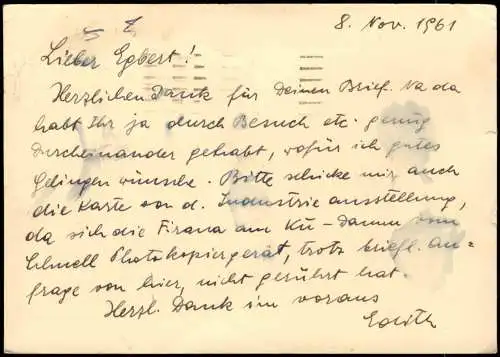 8. Nov. 1961
Lieber Egbert!
Herzlichen Dank für Deinen Brief. Na da
habt Ihr ja durch Besuch etc. genug
Durcheinander gehabt, wofür ich gutes
Gelingen wünsche. Bitte schicke mir auch
die Karte von d. Industrieausstellung,
da sich die Firma am Kü-Damm vom
Schnell Photokopiergerät, trotz briefl. An=
frage von hier, nicht gerührt hat.
Herzl. Dank im voraus
Edith